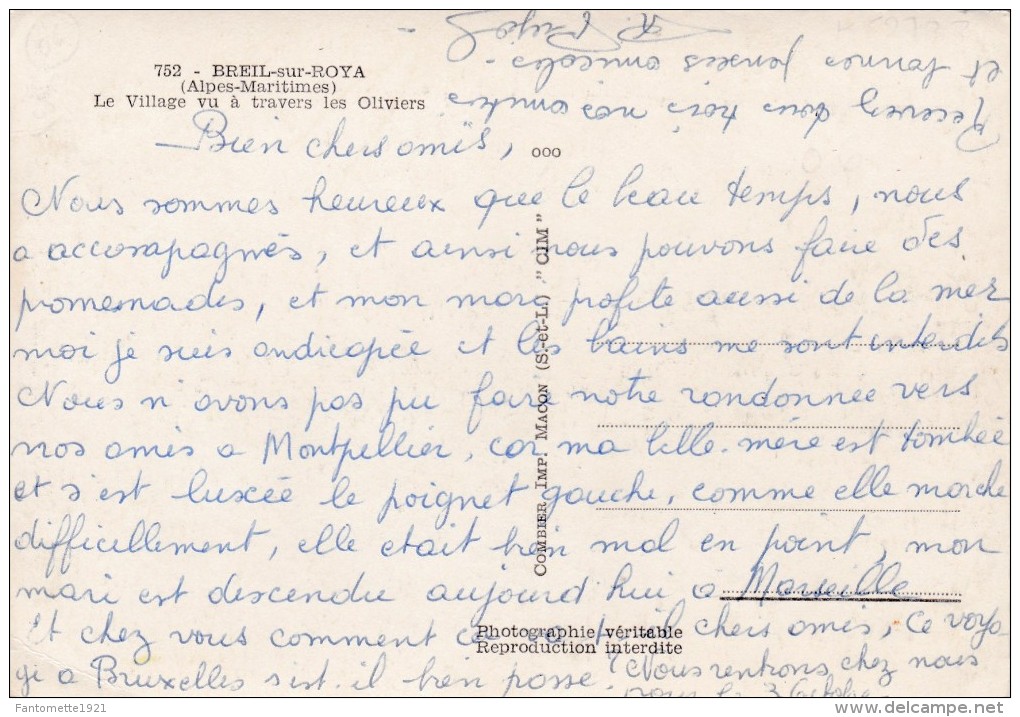 752 - BREIL-sur-ROYA
(Alpes-Maritimes)
Le Village vu à travers les Oliviers
Bien chers amis,
ooo
Nous sommes heureux que le beau temps, nous
a accompagnés, et ainsi nous pouvons faire des
promenades, et mon mari profite aussi de la mer
moi je suis andicapée et les bains me sont interdits
Nous n'avons pas pu faire notre randonnée vers
nos amis à Montpellier, car ma belle-mère est tombée
et s'est luxée le poignet gauche, comme elle marche
difficillement, elle était bien mal en point, mon
mari est descendu aujourd'hui a Marseille
Et chez vous comment ce va t-il chers amis, ce voya-
ge a Bruxelles s'est-il bien passé ? Nous rentrons chez nous
pour le 3 Octobre
Recevez tous trois nos amitiés
et bonnes pensées amicales.
COMBIER IMP. MACON (S.-et-L.) "CIM"
Photographie véritable
Reproduction interdite
Fantomette1921
delcampe.net